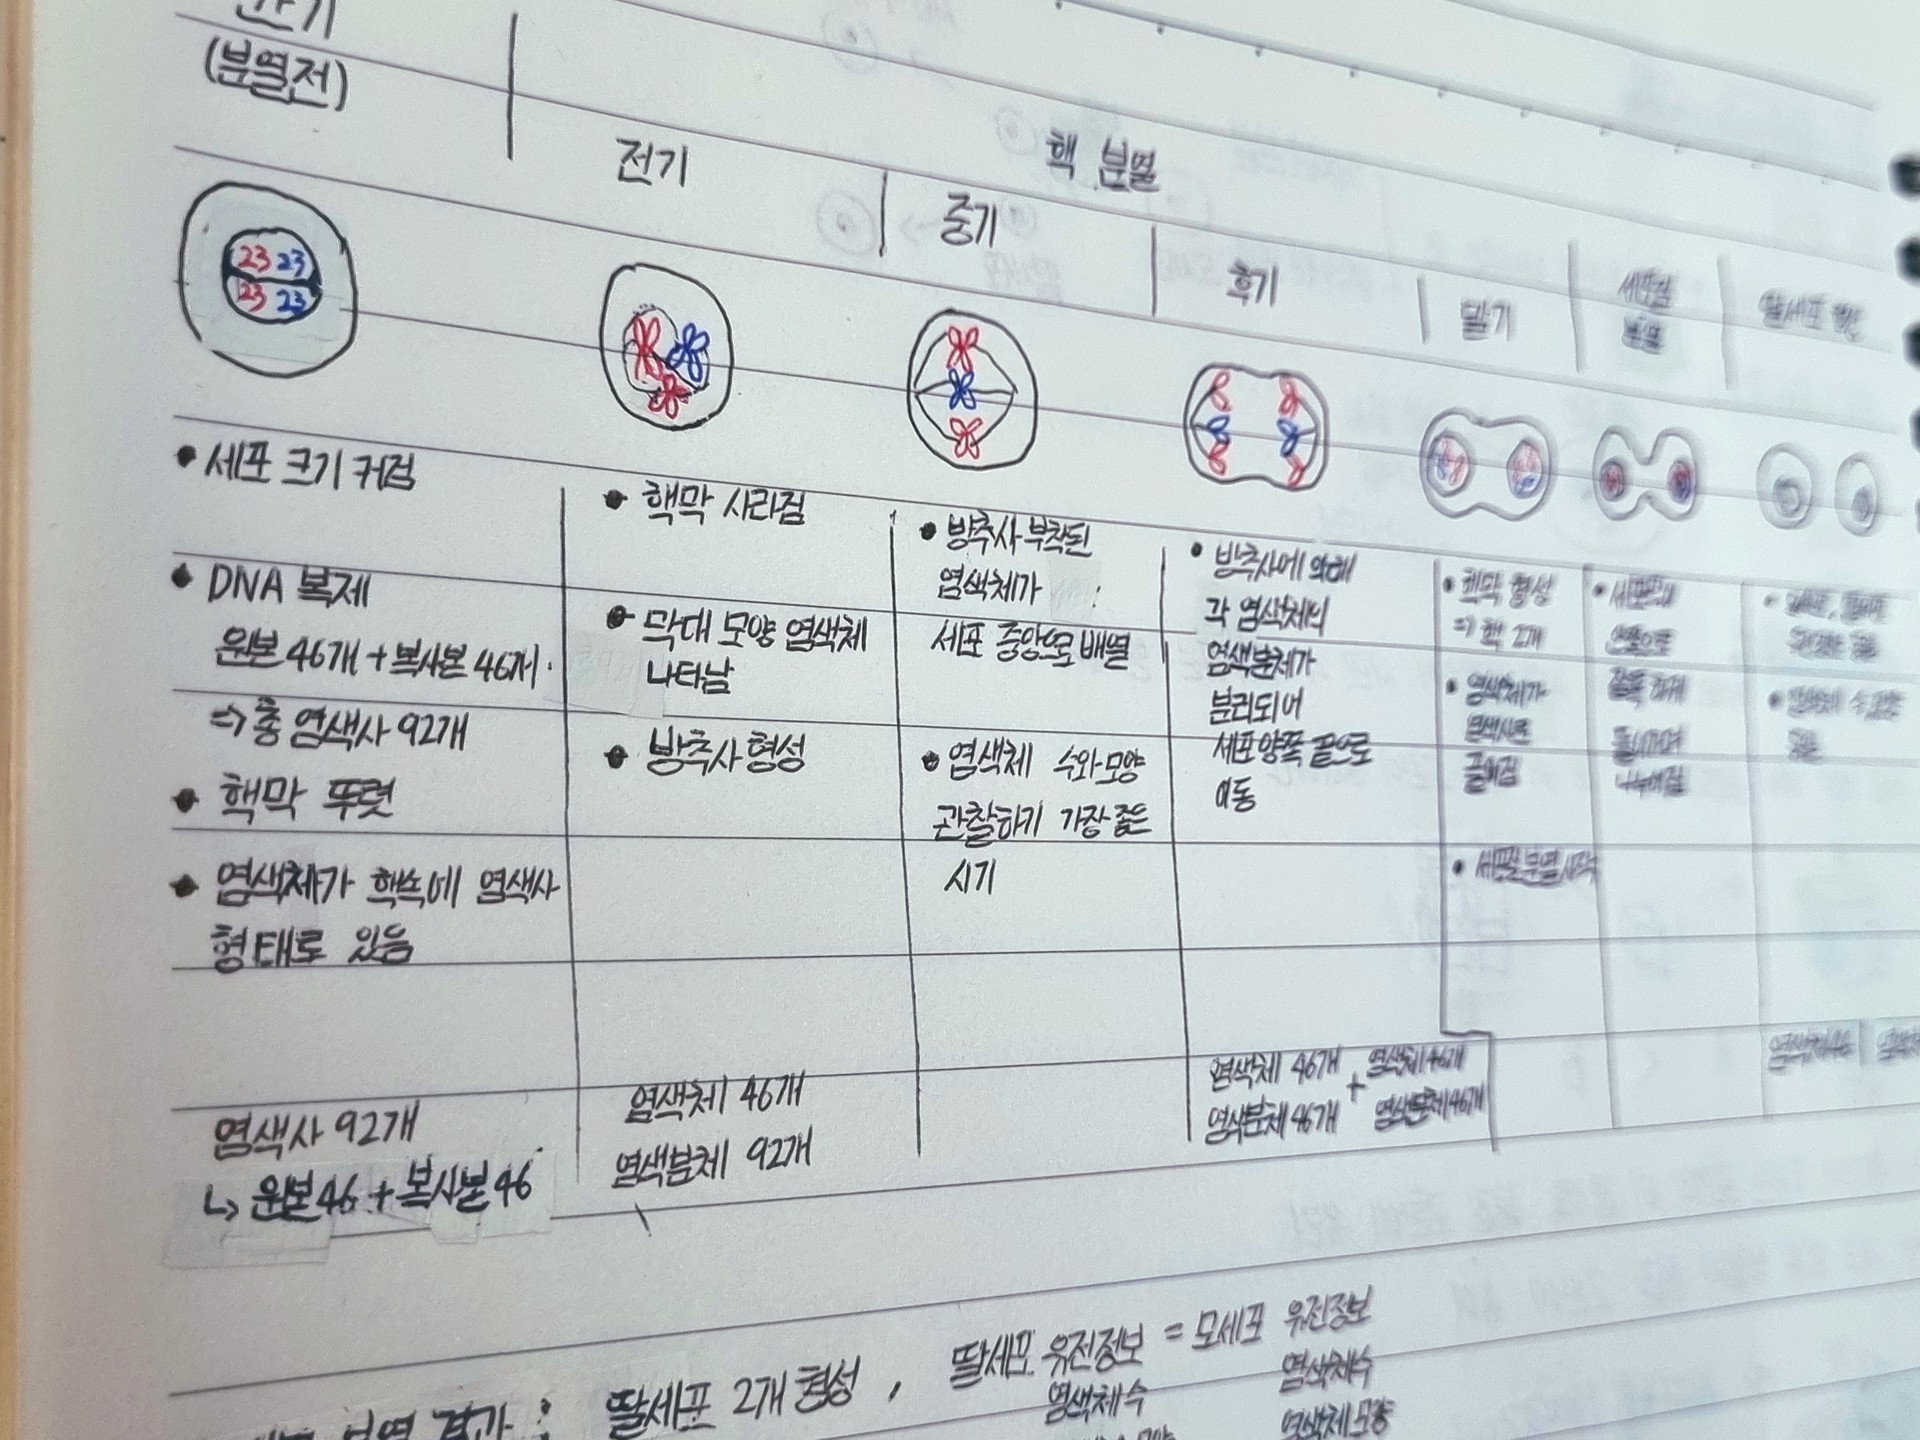 (분열전)
핵 분열
전기
중기
후기
말기
세포질
분열
딸세포 형성
23 23
23 23
• 세포 크기 커짐
• DNA 복제
원본 46개 + 복사본 46개.
⇒ 총 염색사 92개
• 핵막 뚜렷
• 염색체가 핵속에 염색사
형태로 있음
염색사 92개
↳ 원본46 + 복사본 46
• 핵막 사라짐
• 막대 모양 염색체
나타남
• 방추사 형성
염색체 46개
염색분체 92개
• 방추사 부착된
염색체가
세포 중앙으로 배열
• 염색체 수와 모양
관찰하기 가장 좋은
시기
• 방추사에 의해
각 염색체의
염색분체가
분리되어
세포 양쪽 끝으로
이동
염색체 46개 + 염색체 46개
염색분체 46개 염색분체 46개
• 핵막 형성
⇒ 핵 2개
• 염색체가
염색사로
풀어짐
• 세포질 분열 시작
• 세포막이
안쪽으로
들어가며
나누어짐
• 염색체 수, 모양
염색체 46
분열 결과 : 딸세포 2개 형성, 딸세포 유전정보 = 모세포 유전정보
염색체 수 염색체수
염색체 모양